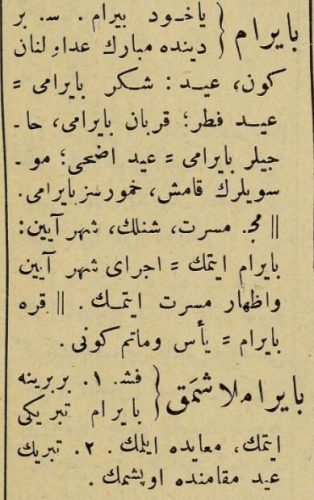 بايرام { ياخـود بيرام . سـ . بر
دينده مبارك عد اولنان
كون، عيـد : شـكر بايرامى =
عيـد فطر؛ قربان بايرامى، حا ـ
جيلر بايرامى = عيد اضحى؛ مو ـ
سويلرك قامش، خمورسز بايرامى .
|| مجـ . مسرت، شنلك، شهر آيين :
بايرام ايتمك = اجراى شهر آيين
واظهار مسرت ايتمـك . || قره
بايرام = يأس وماتم كونى .
بايراملاشمَق { فشـ . ١ . بربرينه
بايرام تبريكى
ايتمك، معايده ايلمك . ٢ . تبريك
عيد مقامنده اوپشمك .